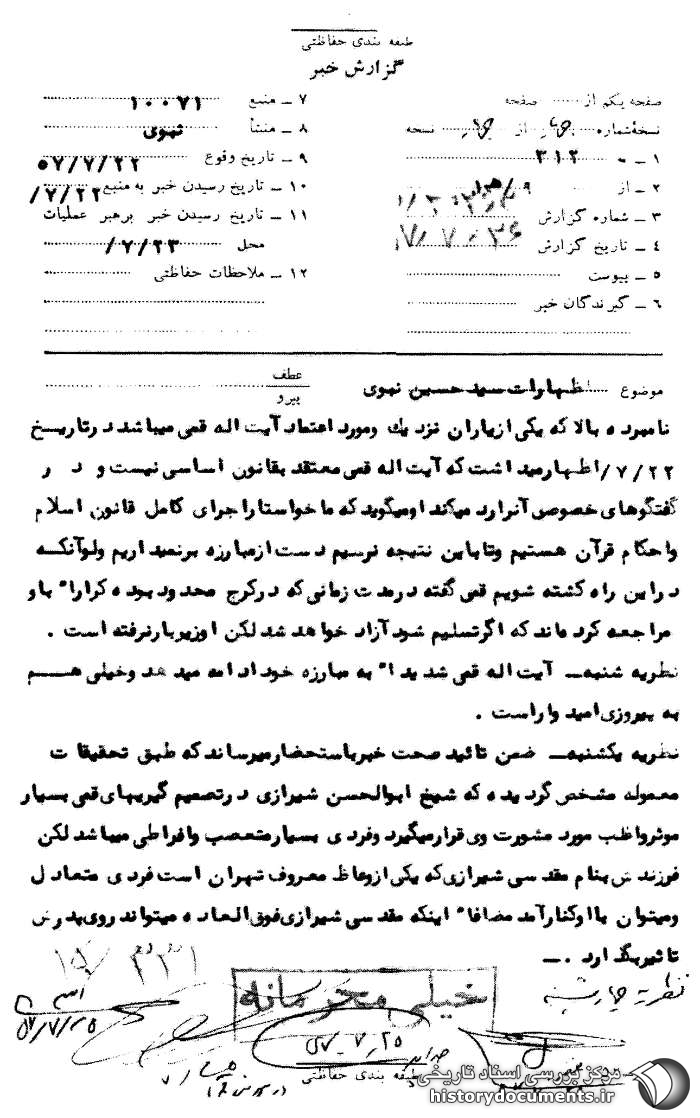 طبقه بندی حفاظتی
گزارش خبر
صفحه یکم از صفحه
نسخهٔ شماره از نسخه
۱ ـ به ۳۱۲
۲ ـ از ۹ه‍
۳ ـ شماره گزارش
۴ ـ تاریخ گزارش ۷/۰۷/۲۶
۵ ـ پیوست
۶ ـ گیرندگان خبر
۷ ـ منبع ۱۰۰۷۱
۸ ـ منشأ نهوی
۹ ـ تاریخ وقوع ۵۷/۷/۲۲
۱۰ ـ تاریخ رسیدن خبر به منبع ۷/۲۲/
۱۱ ـ تاریخ رسیدن خبر برهبر عملیات
محل ۷/۲۳/
۱۲ ـ ملاحظات حفاظتی
موضوع اظهارات سید حسین نهوی
عطف
پیرو
نامبرده بالا که یکی ازیاران نزدیک ومورد اعتماد آیت اله قمی میباشد درتاریخ
۷/۲۲/ اظهارمیداشت که آیت اله قمی معتقد بقانون اساسی نیست و در
گفتگوهای خصوصی آنرا رد میکند او میگوید که ما خواستار اجرای کامل قانون اسلام
واحکام قرآن هستیم وتا باین نتیجه نرسیم دست از مبارزه برنمیداریم ولوآنکه
دراین راه کشته شویم قمی گفته درمدت زمانی که درکرج محدود بوده کرارا" باو
مراجعه کرده اند که اگرتسلیم شود آزاد خواهد شد لکن او زیربارنرفته است .
نظریه شنبه ـ آیت اله قمی شدیدا" به مبارزه خود ادامه میدهد وخیلی هم
به پیروزی امیدوار است .
نظریه یکشنبه ـ ضمن تائید صحت خبر باستحضار میرساند که طبق تحقیقات
معموله مشخص گردیده که شیخ ابوالحسن شیرازی درتصمیم گیریهای قمی بسیار
موثر واغلب مورد مشورت وی قرارمیگیرد وفردی بسیارمتعصب وافراطی میباشد لکن
فرزندش بنام مقدسی شیرازی که یکی ازوعاظ معروف تهران است فردی متعادل
ومیتوان با او کنارآمد مضافا" اینکه مقدسی شیرازی فوق العاده میتواند روی پدرش
تاثیربگذارد .ـ
نظریه چهارشنبه
خیلی محرمانه
۵۷/۷/۲۵
۵۷ـ۷ـ۲۵
طبقه بندی حفاظتی
مرکز بررسی اسناد تاریخی
historydocuments.ir